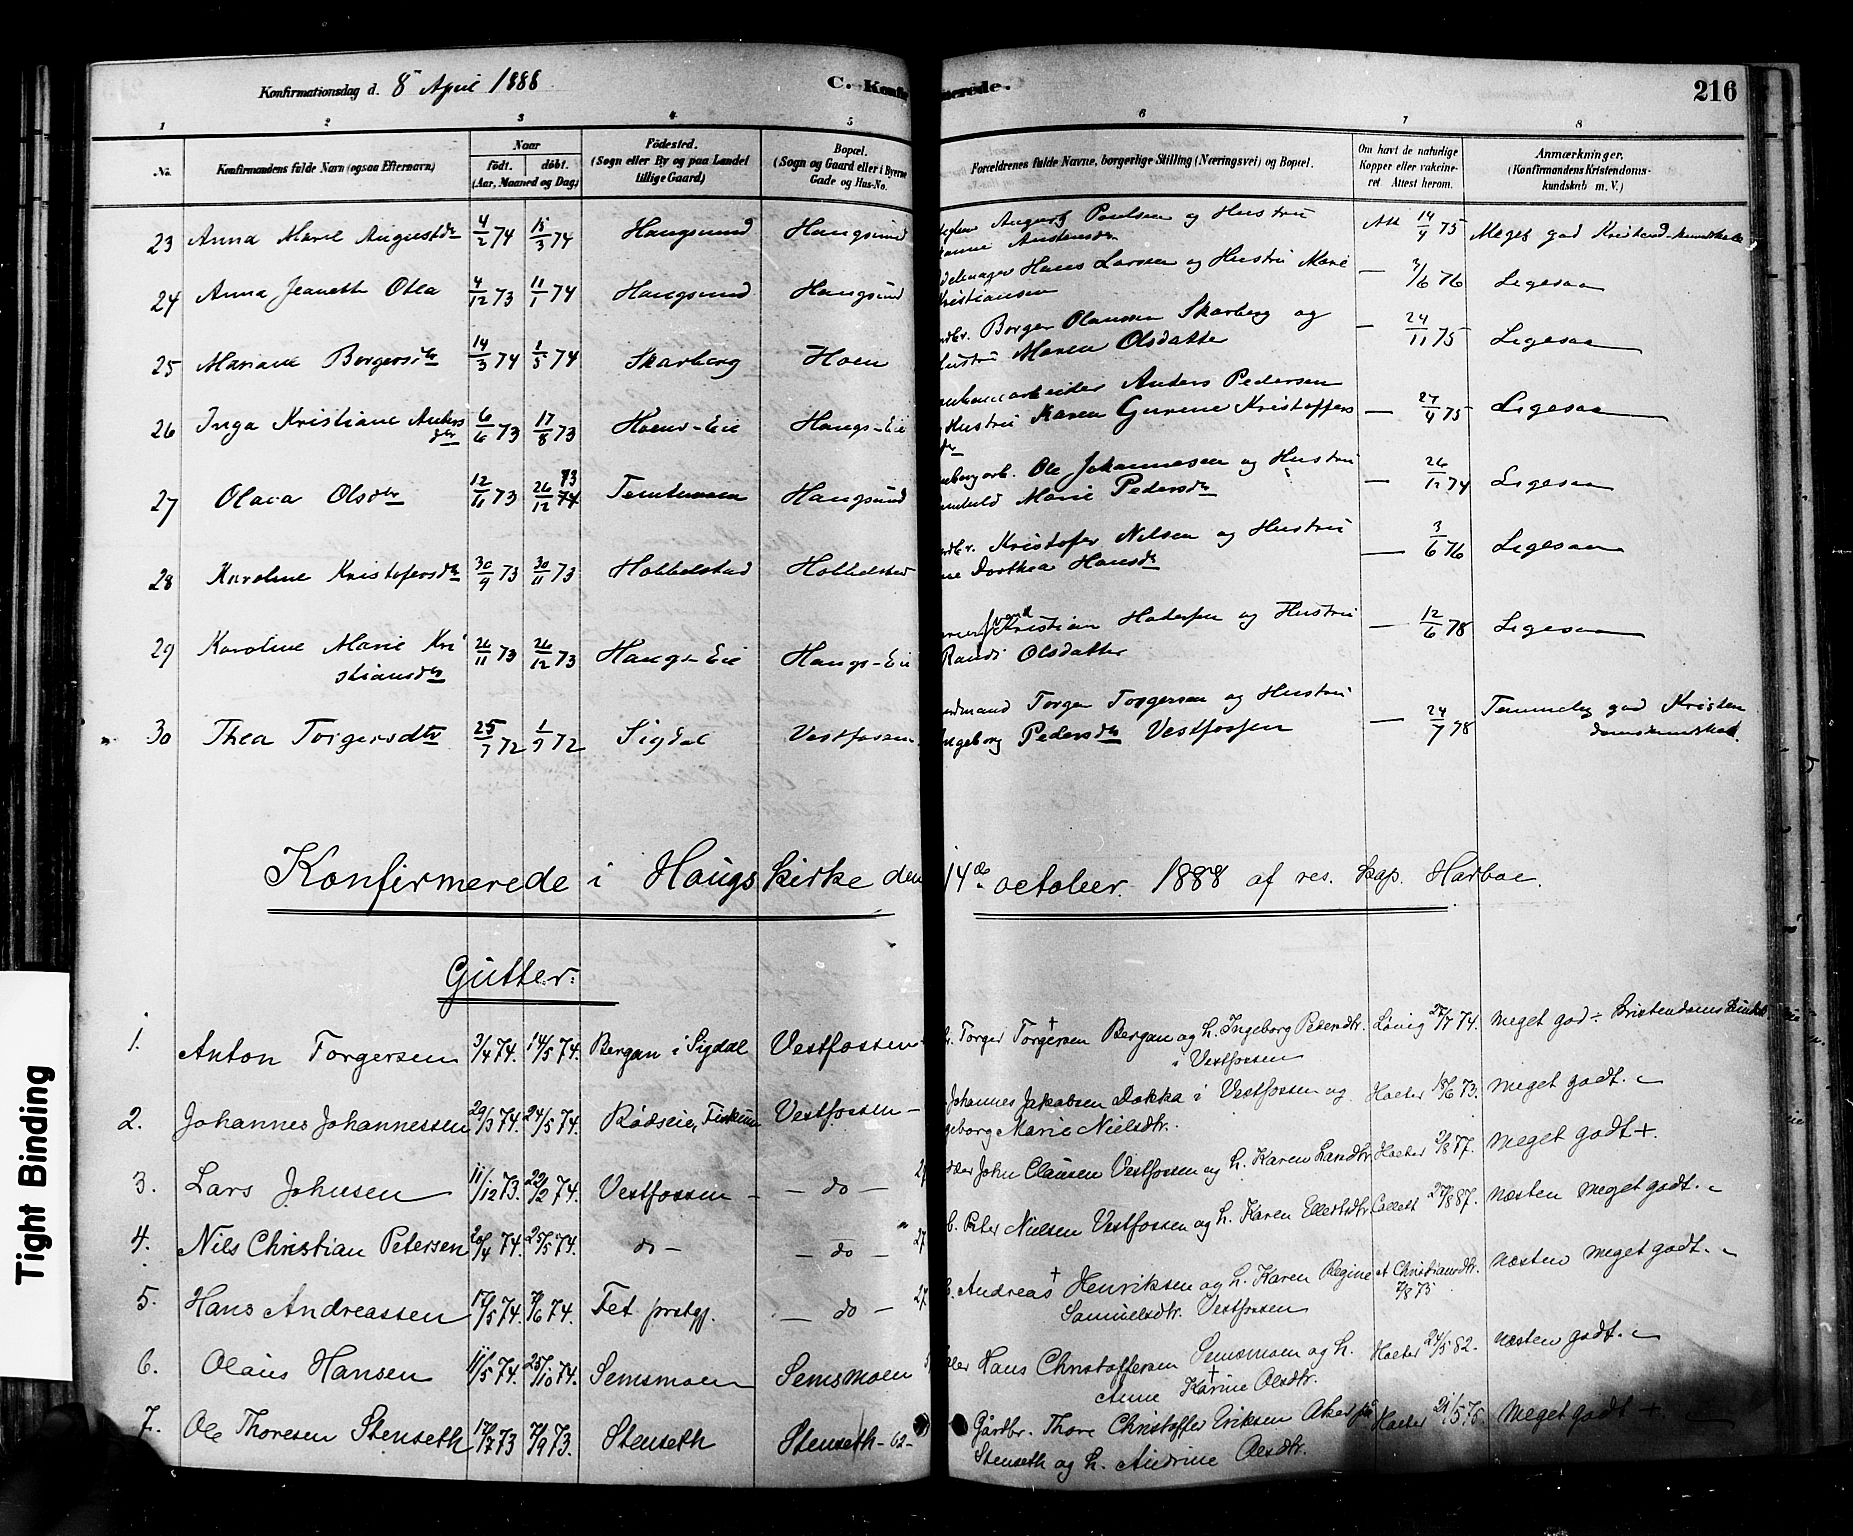 Konfirmationsdag d. 8 April 1888
C. Konfir
merede.
216
1 2 3 4 5 6 7 8
No. Konfirmandens fulde Navn (ogsaa Efternavn). Naar født. døbt. (Aar, Maaned og Dag.) Födested. (Sogn eller By og paa Landet tillige Gaard.) Bopæl. (Sogn og Gaard eller i Byerne Gade og Hus-No. Forældrenes fulde Navne, borgerlige Stilling (Næringsvei) og Bopæl. Om havt de naturlige Kopper eller vakcineret. Attest herom. Anmærkninger. (Konfirmandens Kristendomskundskab m. V.)
23 Anna Marie Augustdtr 4/2 74 15/3 74 Haugsund Haugsund August Paulsen og Hustru Att 14/9 75 Meget god Kristend-kundskab
24 Anna Jeanette Otea 4/12 73 11/1 74 Haugsund Haugsund Hans Larsen og Hustru Marie Kristiansen — 3/6 76 Ligesaa
25 Mariane Borgersdtr 14/3 74 1/5 74 Skarberg Hoen Borger Olaussen Skarberg og Hustru Maren Olsdatter — 24/11 75 Ligesaa
26 Inga Kristiane Andersdtr 6/6 73 17/8 73 Hoens-Eie Haugs-Eie Anders Pedersen Hustru Karen Gurine Kristoffers dtr — 27/9 75 Ligesaa
27 Olava Olsdtr 12/11 73 26/12 73 74 Haugsund Ole Johannesen og Hustru Marie Pedersdtr — 26/12 74 Ligesaa
28 Karoline Kristofersdtr 30/9 73 30/11 73 Hobbelstad Hobbelstad Kristofer Nilsen og Hustru Dorthea Hansdtr — 3/6 76 Ligesaa
29 Karoline Marie Kristiansdtr 26/11 73 26/12 73 Haugs-Eie Haugs-Eie Kristian Halversen og Hustru Randi Olsdatter — 12/6 78 Ligesaa
30 Thea Torgersdtr 25/7 72 1/9 72 Sigdal Vestfossen Torger Torgersen og Hustru Ingeborg Pedersdtr Vestfossen — 24/7 78 Temmelig god Kristendomskundskab.
Konfirmerede i Haugs Kirke den 14de october 1888 af res. Kap. Harboe.
Gutter:
1. Anton Torgersen 3/4 74. 14/5 74. Bergan i Sigdal Vestfossen Torger Torgersen † Bergan og h. Ingeborg Pedersdtr. i Vestfossen Lövig 27/7 74. Meget god ÷ Kristendomskundsk
2. Johannes Johannessen 29/3 74. 24/5 74. Rödseie, Fiskum Vestfossen – Johannes Jakobsen Dokka i Vestfossen og Ingeborg Marie Nielsdtr. Hoeter 18/6 73. Meget godt. –
3. Lars Johnsen 11/12 73. 22/2 74. Vestfossen – – do – John Clausen Vestfossen og h. Karen Larsdtr Hoeter 2/8 77. Meget godt +.
4. Nils Christian Petersen 20/4 74. 25/5 74. do – – do – Peter Nielsen Vestfossen og h. Karen Ellertsdtr Collett 27/8 87. Næsten meget godt. –
5. Hans Andreassen 17/5 74. 7/6 74. Fet prstgj. – do – Andreas † Henriksen og h. Karen Regine Samuelsdtr. Vestfossen A Christiansdtr. 7/8 75 Næsten meget godt. –
6. Olaus Hansen 11/5 74. 25/10 74. Semsmoen Semsmoen Hans Christoffersen Semsmoen og h. Anne Karine † Olsdtr. Hoeter 24/5 82. Næsten godt. –
7. Ole Thoresen Stenseth 17/7 73 7/9 73. Stenseth Stenseth – 62 – Gårdbr. Thore Christoffer Eriksen Aker på Stenseth og h. Andrine Olsdtr. Hoeter 21/5 75. Meget godt +
Tight Binding